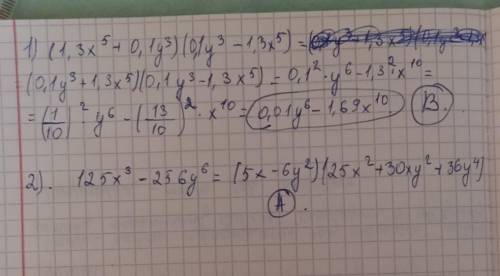 1) (1,3x⁵ + 0,1y³)(0,1y³ - 1,3x⁵) =
(0,1y³ + 1,3x⁵)(0,1y³ - 1,3x⁵) = 0,1² · y⁶ - 1,3² x¹⁰ =
= (1/10)² y⁶ - (13/10)² · x¹⁰ = 0,01y⁶ - 1,69x¹⁰ B.
2). 125x³ - 256y⁶ = (5x - 6y²)(25x² + 30xy² + 36y⁴)
A.